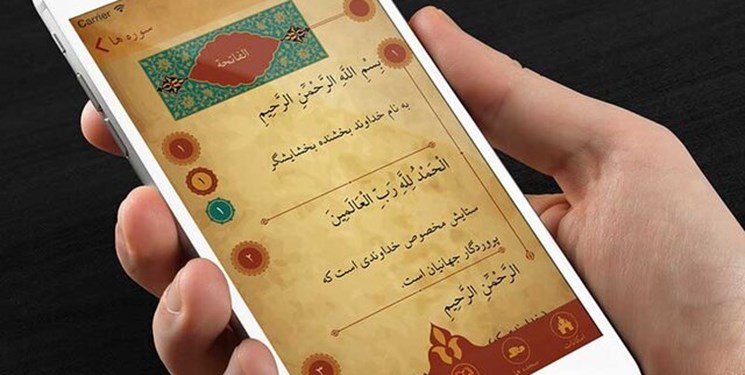 Carrier
سوره ها
الفاتحة
١
بِسْمِ اللَّهِ الرَّحْمَٰنِ الرَّحِيمِ
به نام خداوند بخشنده بخشایشگر
١
١
١
الْحَمْدُ لِلَّهِ رَبِّ الْعَالَمِينَ
ستایش مخصوص خداوندی است که
پروردگار جهانیان است.
٢
الرَّحْمَٰنِ الرَّحِيمِ
٣
امکانات